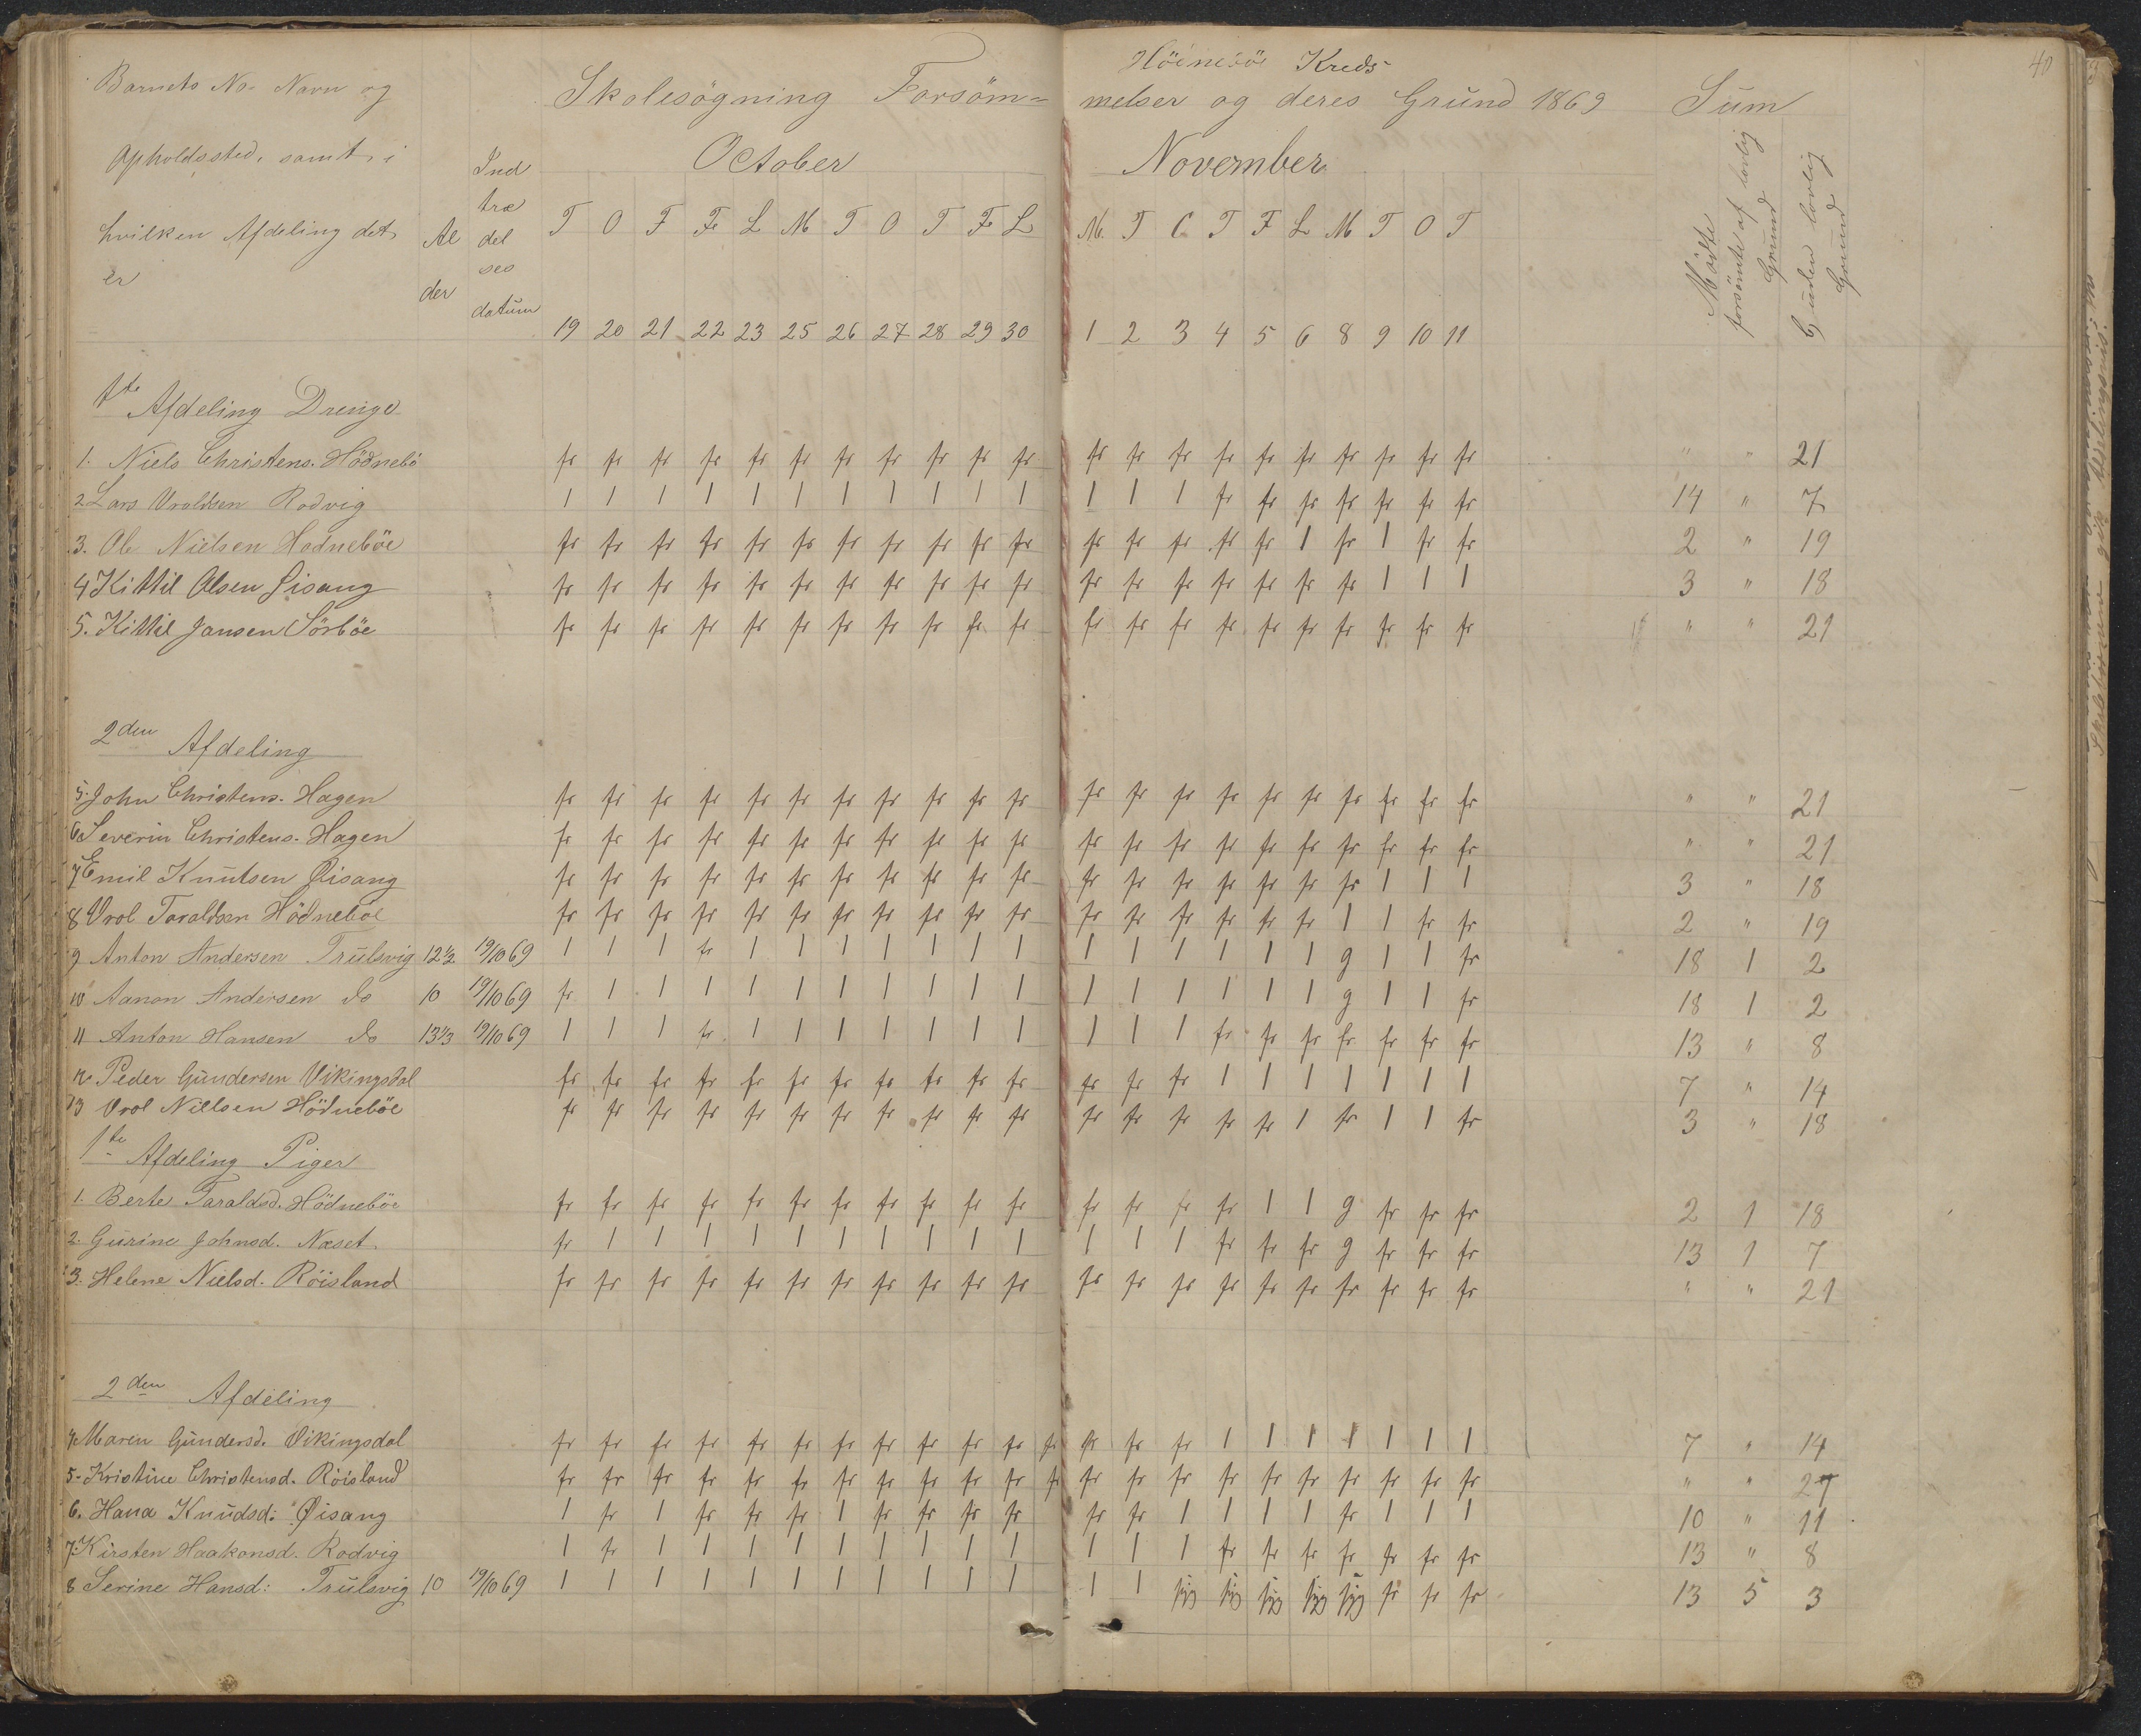 Höinesöe Kreds
40
Barnets No. Navn og Skolesögning Forsöm= melser og deres Grund 1869 Sum
Opholdssted, samt i
October November
hvilken Afdeling det
er
Al
der
Ind
træ
del
ses
datum
Mödte
forsömte af lovlig
Grund
uden lovlig
Grund
T O F F L M T O T F L M. T O T F L M T O T
19 20 21 22 23 25 26 27 28 29 30 1 2 3 4 5 6 8 9 10 11
1te Afdeling Drenge
1. Niels Christens. Hödnebö fr fr fr fr fr fr fr fr fr fr fr fr fr fr fr fr fr fr fr fr fr " " 21
2 Lars Vroldsen Rodvig 1 1 1 1 1 1 1 1 1 1 1 1 1 1 fr fr fr fr fr fr fr 14 " 7
3. Ole Nielsen Hodneböe fr fr fr fr fr fr fr fr fr fr fr fr fr fr fr fr 1 fr 1 fr fr 2 " 19
4 Kittil Olsen Öisang fr fr fr fr fr fr fr fr fr fr fr fr fr fr fr fr fr fr 1 1 1 3 " 18
5. Kittil Jansen Sörböe fr fr fr fr fr fr fr fr fr fr fr fr fr fr fr fr fr fr fr fr fr " " 21
2den Afdeling
5. John Christens. Hagen fr fr fr fr fr fr fr fr fr fr fr fr fr fr fr fr fr fr fr fr fr " " 21
6 Severin Christens. Hagen fr fr fr fr fr fr fr fr fr fr fr fr fr fr fr fr fr fr fr fr fr " " 21
7 Emil Knutsen Øisang fr fr fr fr fr fr fr fr fr fr fr fr fr fr fr fr fr fr 1 1 1 3 " 18
8 Vrol Taraldsen Hödneböe fr fr fr fr fr fr fr fr fr fr fr fr fr fr fr fr fr 1 1 fr fr 2 " 19
9 Anton Andersen Trulsvig 12½ 19/10 69 1 1 1 fr 1 1 1 1 1 1 1 1 1 1 1 1 1 g 1 1 fr 18 1 2
10 Aanon Andersen do 10 19/10 69 fr 1 1 1 1 1 1 1 1 1 1 1 1 1 1 1 1 g 1 1 fr 18 1 2
11 Anton Hansen do 13⅓ 19/10 69 1 1 1 fr 1 1 1 1 1 1 1 1 1 1 fr fr fr fr fr fr fr 13 " 8
12 Peder Gundersen Vikingsdal fr fr fr fr fr fr fr fr fr fr fr fr fr fr 1 1 1 1 1 1 1 7 " 14
13 Vrol Nillsen Hödneböe fr fr fr fr fr fr fr fr fr fr fr fr fr fr fr fr 1 fr 1 1 fr 3 " 18
1te Afdeling Piger
1. Berte Taraldsd. Hödneböe fr fr fr fr fr fr fr fr fr fr fr fr fr fr fr 1 1 g fr fr fr 2 1 18
2. Gurine Johnsd. Næset fr 1 1 1 1 1 1 1 1 1 1 1 1 1 fr fr fr g fr fr fr 13 1 7
3. Helene Nielsd. Röisland fr fr fr fr fr fr fr fr fr fr fr fr fr fr fr fr fr fr fr fr fr " " 21
2den Afdeling
4. Maren Gundersd. Vikingsdal fr fr fr fr fr fr fr fr fr fr fr fr fr fr fr 1 1 1 1 1 1 1 7 " 14
5. Kristine Christensd. Röisland fr fr fr fr fr fr fr fr fr fr fr fr fr fr fr fr fr fr fr fr fr fr " " 21
6. Hana Knudsd: Øisang 1 fr 1 fr fr fr 1 fr fr fr fr fr fr 1 1 1 1 fr 1 1 1 10 " 11
7. Kirsten Haakonsd. Rodvig 1 fr 1 1 1 1 1 1 1 1 1 1 1 1 fr fr fr fr fr fr fr 13 " 8
8 Serine Hansd: Trulsvig 10 19/10 69 1 1 1 1 1 1 1 1 1 1 1 1 1 syg syg syg syg syg fr fr fr 13 5 3